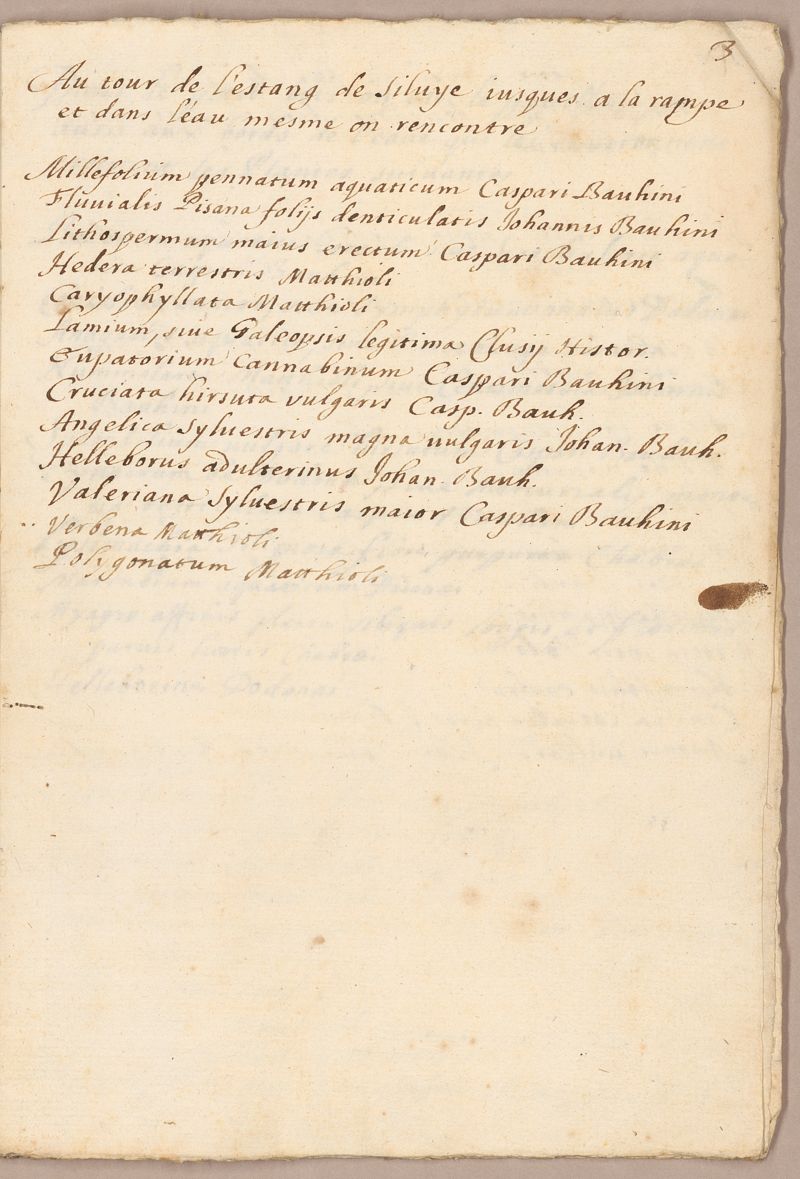 3
Au tour de l'estang de Siluye iusques a la rampe
et dans l'éau mesme on rencontre
Millefolium pennatum aquaticum Caspari Bauhini
Fluvialis Pisana folijs denticulatis Johannis Bauhini
Lithospermum maius erectum Caspari Bauhini
Hedera terrestris Matthioli
Caryophyllata Matthioli
Lamium, siue Galeopsis legitima Clusij Histor.
Eupatorium Cannabinum Caspari Bauhini
Cruciata hirsuta vulgaris Casp. Bauh.
Angelica sylvestris magna vulgaris Johan. Bauh.
Helleborus adulterinus Johan. Bauh.
Valeriana Sylvestris maior Caspari Bauhini
Verbena Matthioli
Polygonatum Matthioli